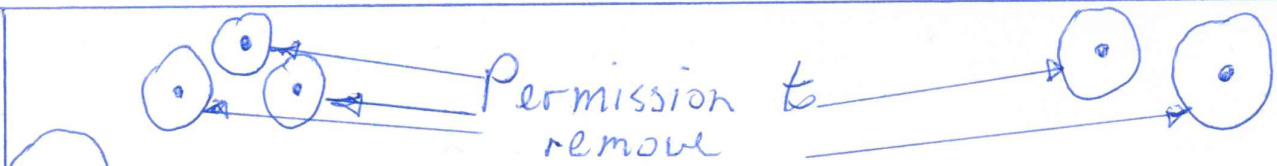 Permission to
remove